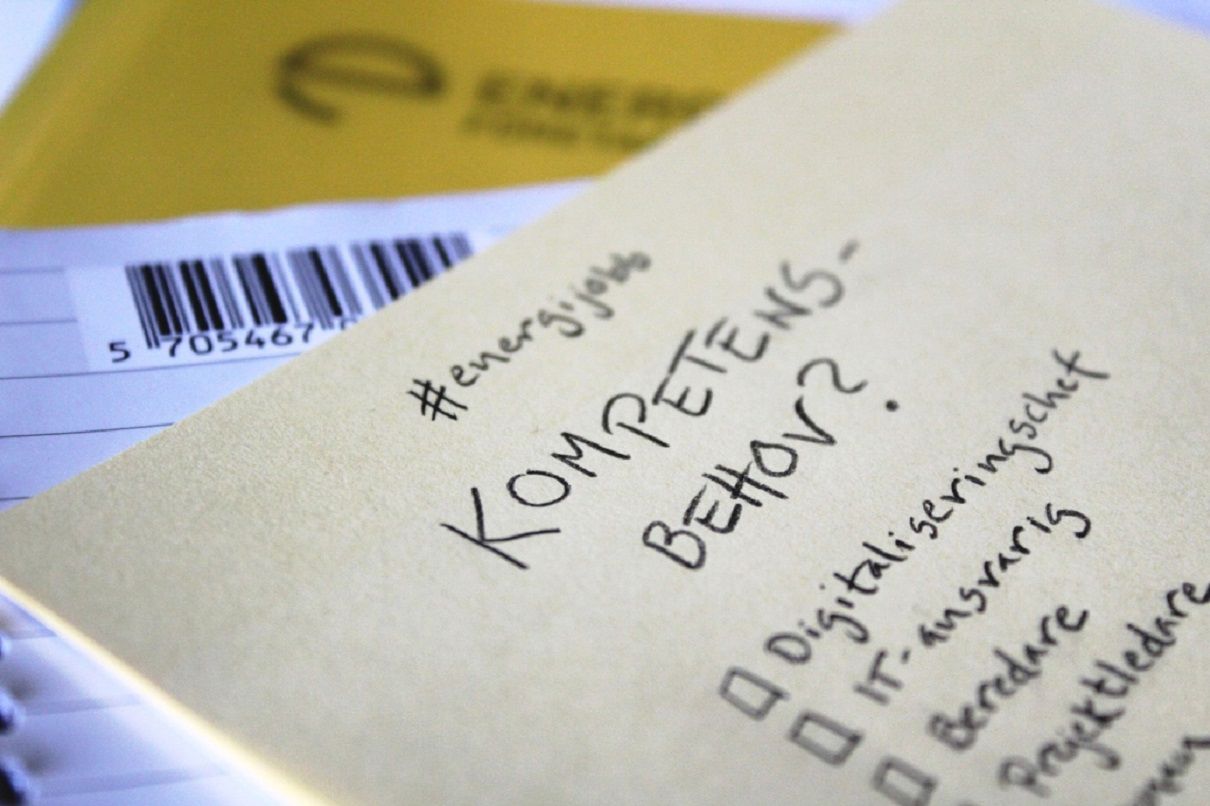 ENER
5 705467
#energijobb
KOMPETENS-
BEHOV?
Digitaliseringschef
IT-ansvarig
Beredare
Projektledare